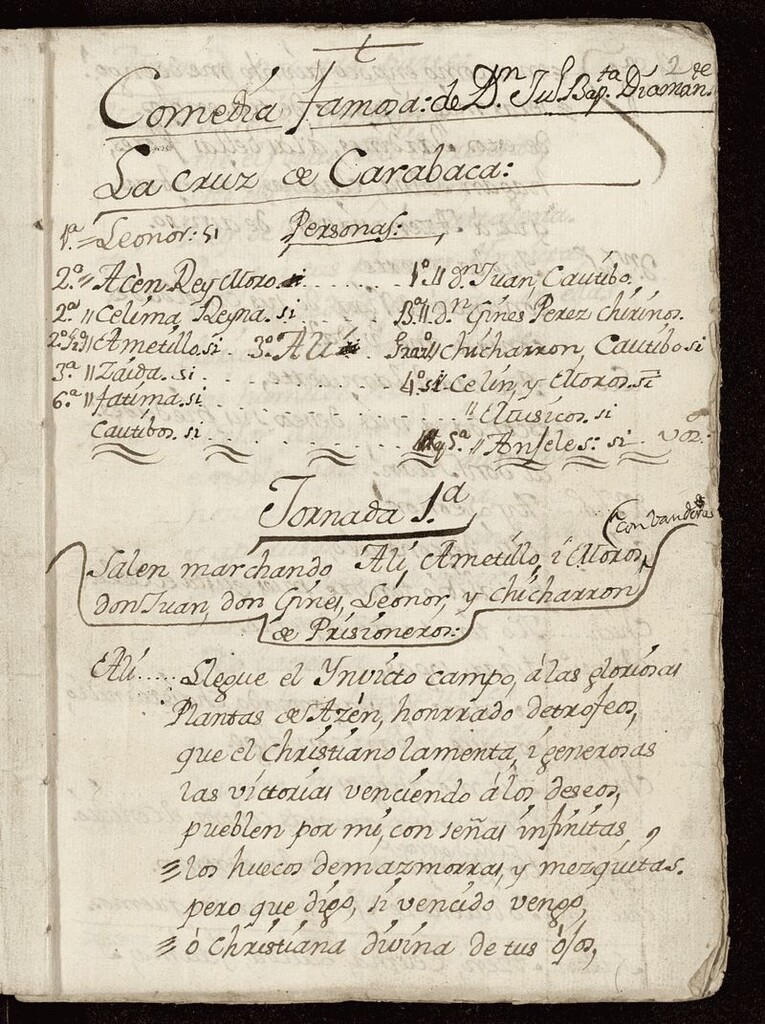 2
Comedia famosa: de Dn. Jul Bapta. Diamante.
La cruz de Carabaca:
1ª = Leonor: si Personas:
2º " Acèn Rey Moro. si . . . . . . . 1º " dn Juan, Cautibo.
2ª " Celima, Reyna. si . . . . . . . Bª " dn Gines Perez chirinos.
Ametillo. si . 3º Alí Grazº " chicharron, Cautibo si
3ª " Zaida. si . . . . . . . 4º si Celin, y Moros. si
6ª " fatima. si . . . . . . . " Musicos. si
Cautibos. si . . . . . . . 5ª " Anjeles: si
Jornada 1.ª
(con vanderas
Salen marchando Alí, Ametillo, i Moros,
don Juan, don Gines, Leonor, y chicharron
de Prisioneros:
Alí..... Llegue el Ynvicto campo, à las gloriosas
Plantas de Azèn, honrrado detrofeos,
que el christiano lamenta, i generosas
las victorias venciendo à los deseos,
pueblen por mi, con señas infinitas,
= los huecos demazmorras, y mezquitas.
pero que digo, si vencido vengo,
= ò christiana divina de tus ojos,